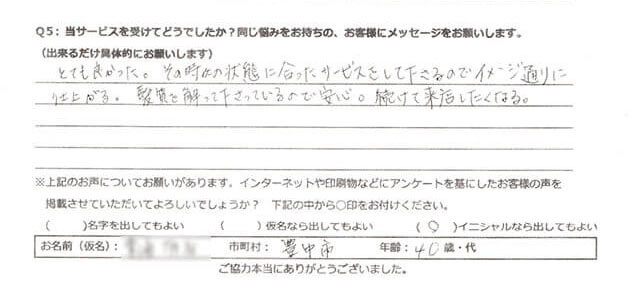 Q5：当サービスを受けてどうでしたか？同じ悩みをお持ちの、お客様にメッセージをお願いします。
（出来るだけ具体的にお願いします）
とても良かった。その時々の状態に合ったサービスをして下さるのでイメージ通りに
仕上がる。髪質を解って下さっているので安心。続けて来店したくなる。
※上記のお声についてお願いがあります。インターネットや印刷物などにアンケートを基にしたお客様の声を
掲載させていただいてよろしいでしょうか？ 下記の中から○印をお付けください。
（ ）名字を出してもよい （ ）仮名なら出してもよい （ ○ ）イニシャルなら出してもよい
お名前（仮名）： 市町村： 豊中市 年齢：40歳・代
ご協力本当にありがとうございました。